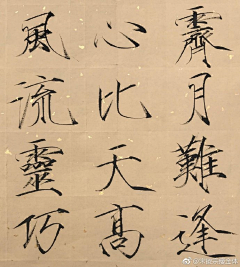 霽月難逢
心比天高
風流靈巧